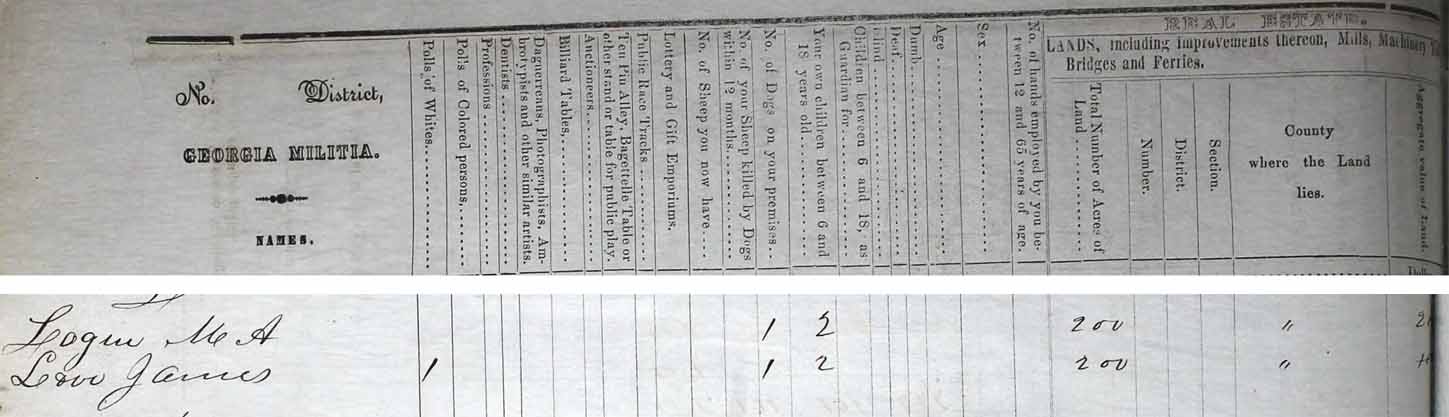 No. District,
GEORGIA MILITIA.
NAMES.
Polls of Whites
Polls of Colored persons,
Professions
Dentists
Daguerreans, Photographists, Am-
brotypists and other similar artists.
Billiard Tables,
Auctioneers
Ten Pin Alley, Bagettelle Table or
other stand or table for public play.
Public Race Tracks
Lottery and Gift Emporiums.
No. of Sheep you now have
No. of your Sheep killed by Dogs
within 12 months.
No. of Dogs on your premises
Your own children between 6 and
18 years old.
Children between 6 and 18, as
Guardian for
Blind
Deaf
Dumb
Age
Sex
No. of hands employed by you be-
tween 12 and 65 years of age.
REAL ESTATE.
LANDS, including Improvements thereon, Mills, Machinery
Bridges and Ferries.
Total Number of Acres of
Land
Number.
District.
Section.
County
where the Land
lies.
Aggregate value of Land.
Logue M A 1 2 200 "
Love James 1 1 2 200 "